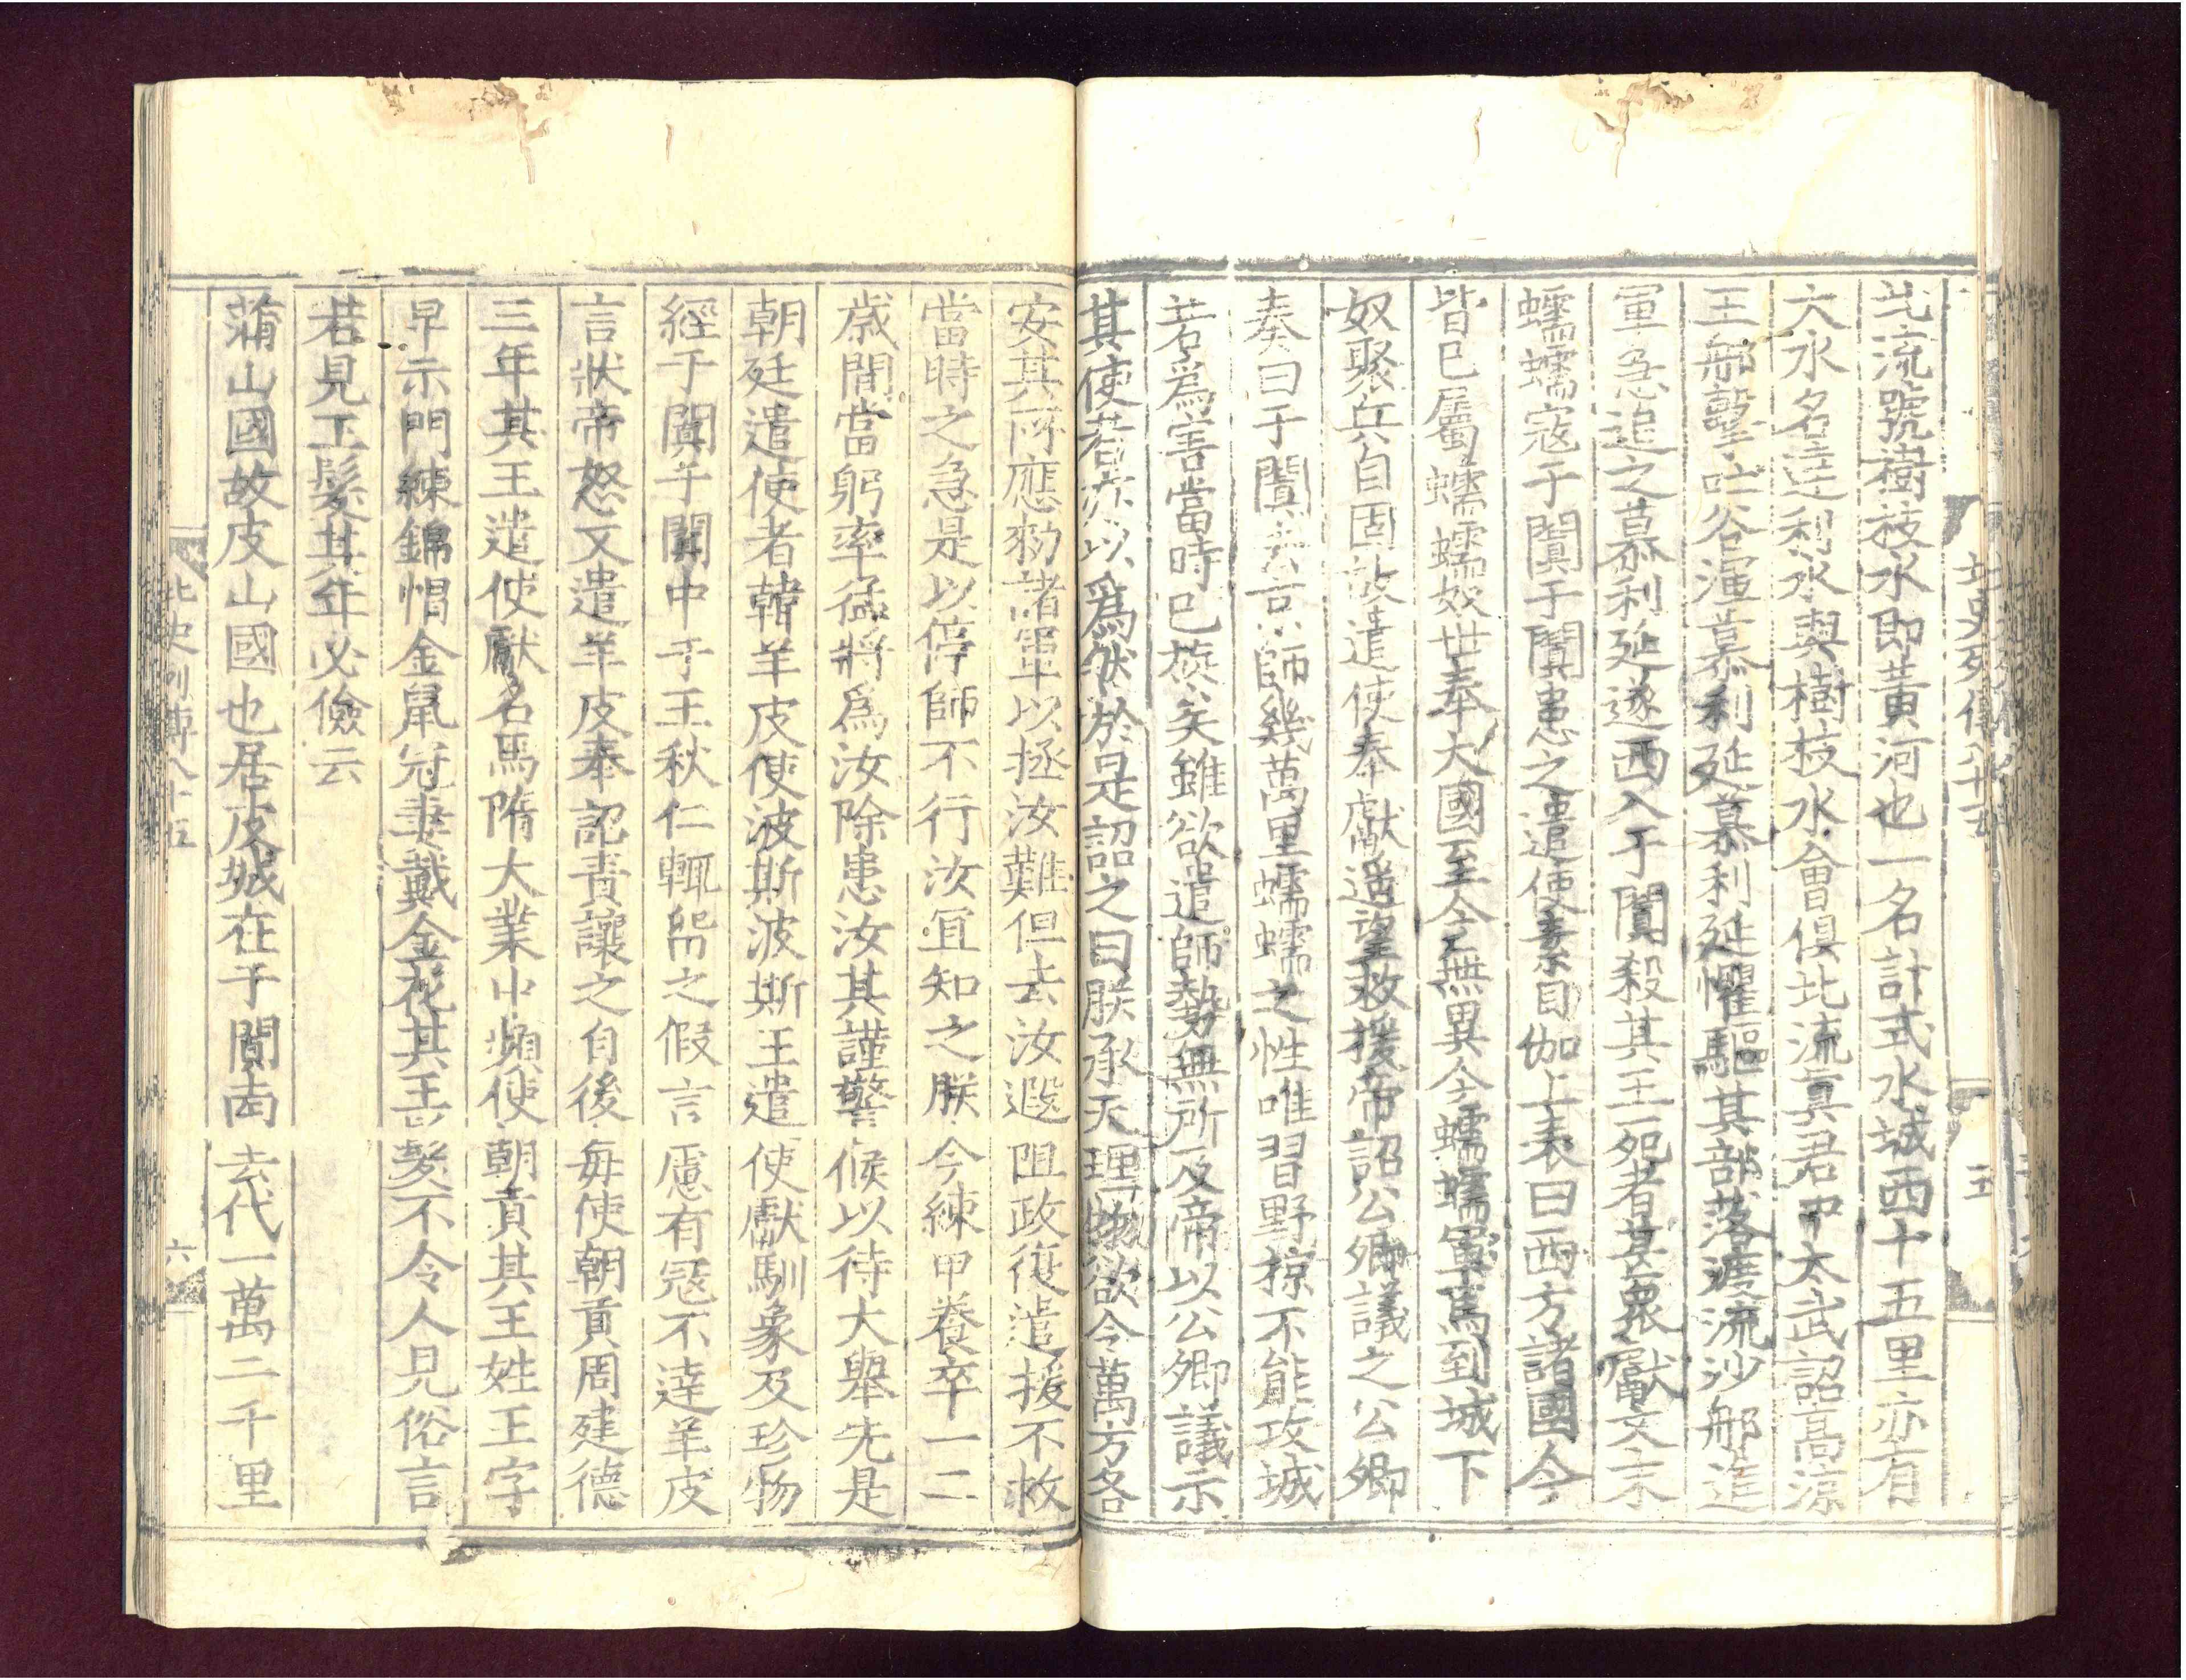 北史列傳八十五
五
北流號樹枝水即黃河也一名計式水城西十五里亦有
大水名達利水與樹枝水會俱北流真君中太武詔高涼
王郍擊吐谷渾慕利延慕利延懼驅其部落渡流沙郍進
軍急追之慕利延遂西入于闐殺其王死者甚衆獻文末
蠕蠕寇于闐于闐患之遣使素目伽上表曰西方諸國今
皆已屬蠕蠕奴世奉大國至今無異今蠕蠕軍馬到城下
奴聚兵自固故遣使奉獻遥望救援帝詔公卿議之公卿
奏曰于闐去京師幾萬里蠕蠕之性唯習野掠不能攻城
若爲害當時已旋矣雖欲遣師勢無所及帝以公卿議示
其使者亦以爲然於是詔之曰朕承天理物欲令萬方各
安其所應勑諸軍以拯汝難但去汝遐阻政復遣援不救
當時之急是以停師不行汝宜知之朕今練甲養卒一二
歲間當躬率猛將爲汝除患汝其謹警候以待大舉先是
朝廷遣使者韓羊皮使波斯波斯王遣使獻馴象及珍物
經于闐于闐中于王秋仁輒留之假言慮有寇不達羊皮
言狀帝怒又遣羊皮奉詔責讓之自後每使朝貢周建德
三年其王遣使獻名馬隋大業中頻使朝貢其王姓王字
早示門練錦帽金鼠冠妻戴金花其王髮不令人見俗言
若見王髮其年必儉云
蒲山國故皮山國也居皮城在于闐南去代一萬二千里
北史列傳八十五
六